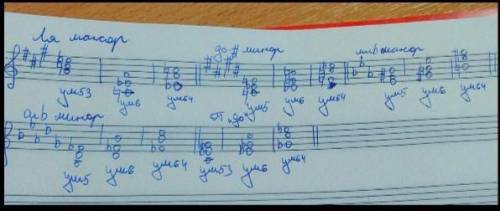 Ля мажор до # минор ми b мажор
ум53 ум6 ум64 ум5 ум6 ум64 ум5 ум6 ум64
минор от "до"
ум5 ум6 ум64 ум53 ум6 ум64